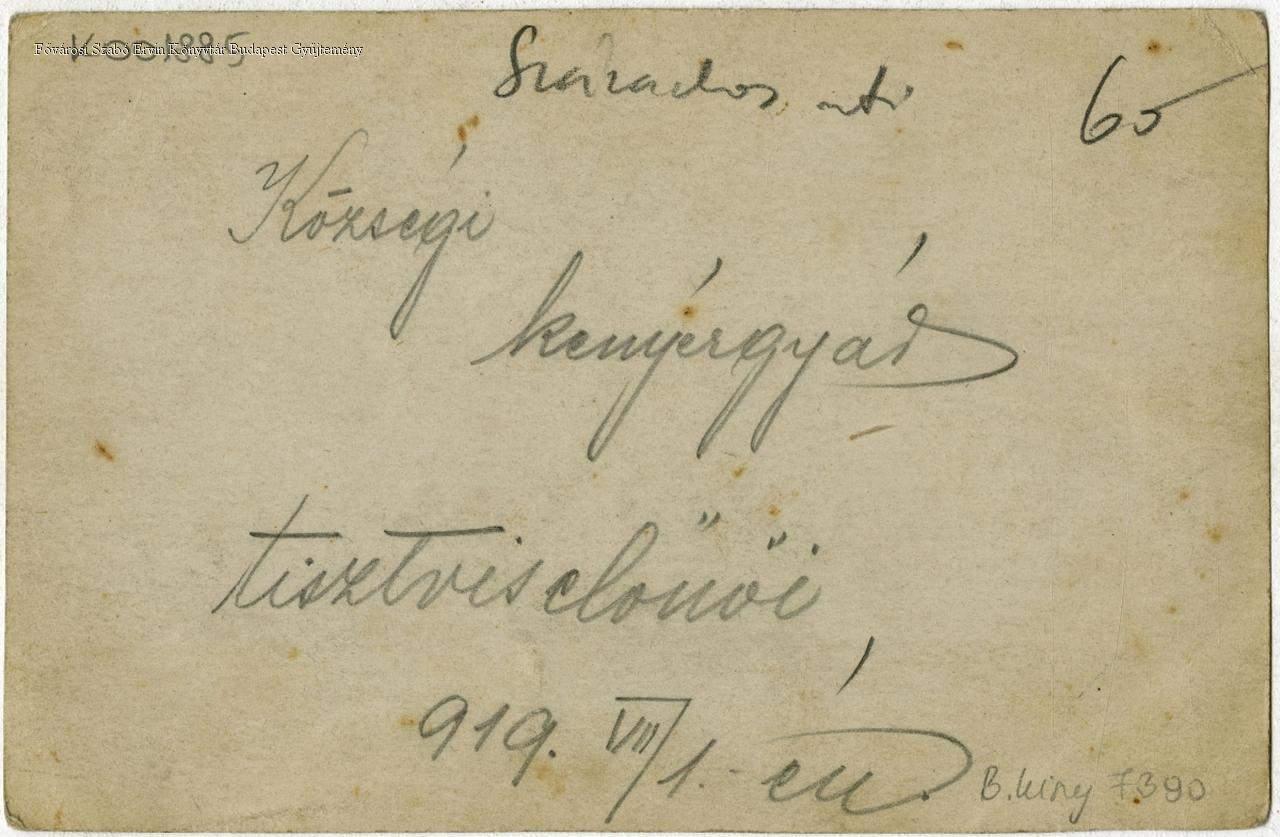 Fővárosi Szabó Ervin Könyvtár Budapest Gyűjtemény
K 001885
Százados uti
60
Községi
kenyérgyár
tisztviselőnői
919. VIII/1.-én.
B. 7390